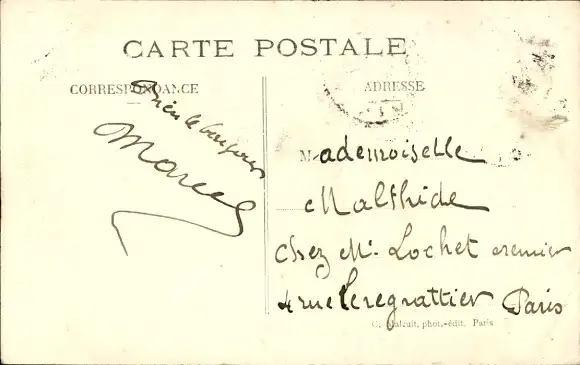 CARTE POSTALE
CORRESPONDANCE
ADRESSE
Bien le
Marcel
Mademoiselle
Malthide
Chez Mr. Lochet cremier
4 rue le regrattier Paris
C. Malcuit, phot.-édit. Paris